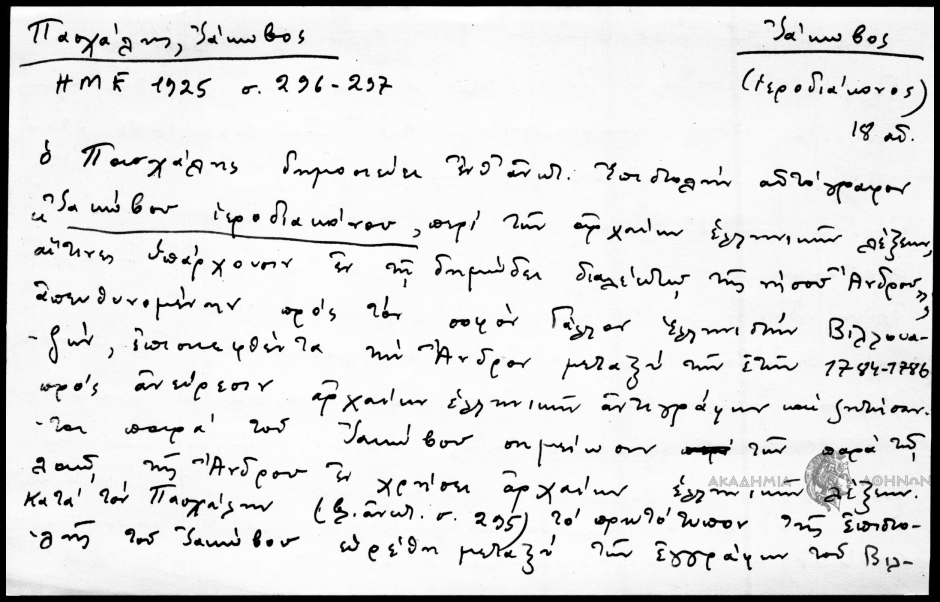 Πασχάλης, Ἰάκωβος
Ἰάκωβος
ΗΜΕ 1925 σ. 296-297
(ἱεροδιάκονος)
18 αἰ.
ὁ Πασχάλης δημοσιεύει ἐνθ' ἀνωτ. ἐπιστολὴν αὐτόγραφον
"Ἰακώβου ἱεροδιακόνου, περὶ τῶν ἀρχαίων ἑλληνικῶν λέξεων,
αἵτινες ὑπάρχουσιν ἐν τῇ δημώδει διαλέκτῳ τῆς νήσου Ἄνδρου",
ἀπευθυνομένην πρὸς τὸν σοφὸν Γάλλον ἑλληνιστὴν Βιλλουα-
-ζὼν, ἐπισκεφθέντα τὴν Ἄνδρον μεταξὺ τῶν ἐτῶν 1784-1786
πρὸς ἀνεύρεσιν ἀρχαίων ἑλληνικῶν ἀντιγράφων καὶ ζητήσαν-
-τα παρὰ τοῦ Ἰακώβου σημείωσιν τῶν παρὰ τῷ
λαῷ τῆς Ἄνδρου ἐν χρήσει ἀρχαίων ἑλληνικῶν λέξεων.
Κατὰ τὸν Πασχάλην (ἔ.ἀνωτ. σ. 295) τὸ πρωτότυπον τῆς ἐπιστο-
-λῆς τοῦ Ἰακώβου εὑρέθη μεταξὺ τῶν ἐγγράφων τοῦ Βιλ-
ΑΚΑΔΗΜΙΑ ΑΘΗΝΩΝ